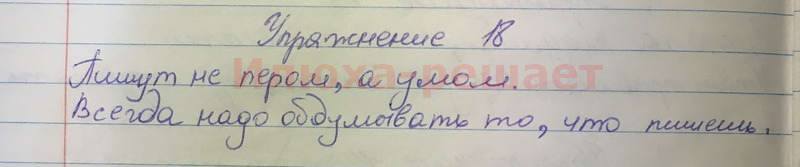 Упражнение 18
Пишут не пером, а умом.
Илюха-решает
Всегда надо обдумывать то, что пишешь.